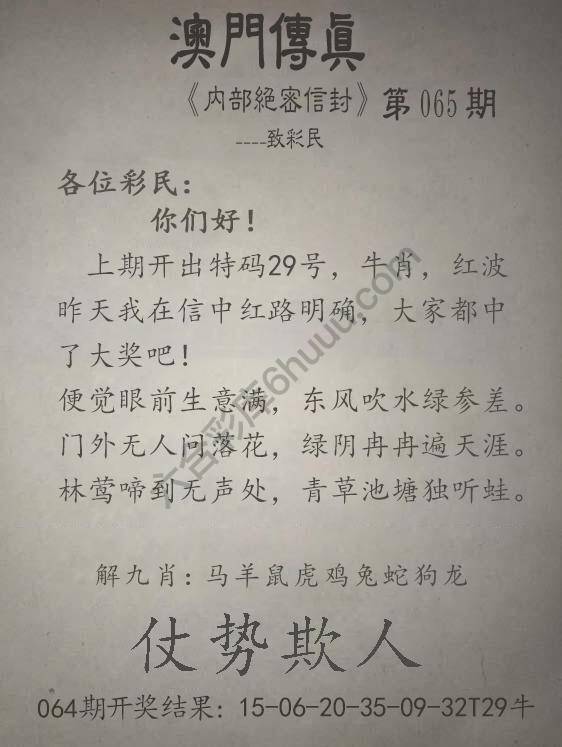 澳門傳眞
《内部絕密信封》第065期
----致彩民
各位彩民：
你们好！
上期开出特码29号，牛肖，红波
昨天我在信中红路明确，大家都中
了大奖吧！
便觉眼前生意满，东风吹水绿参差。
门外无人问落花，绿阴冉冉遍天涯。
林莺啼到无声处，青草池塘独听蛙。
解九肖：马羊鼠虎鸡兔蛇狗龙
仗势欺人
064期开奖结果：15-06-20-35-09-32T29牛
六合彩库6huuu.com